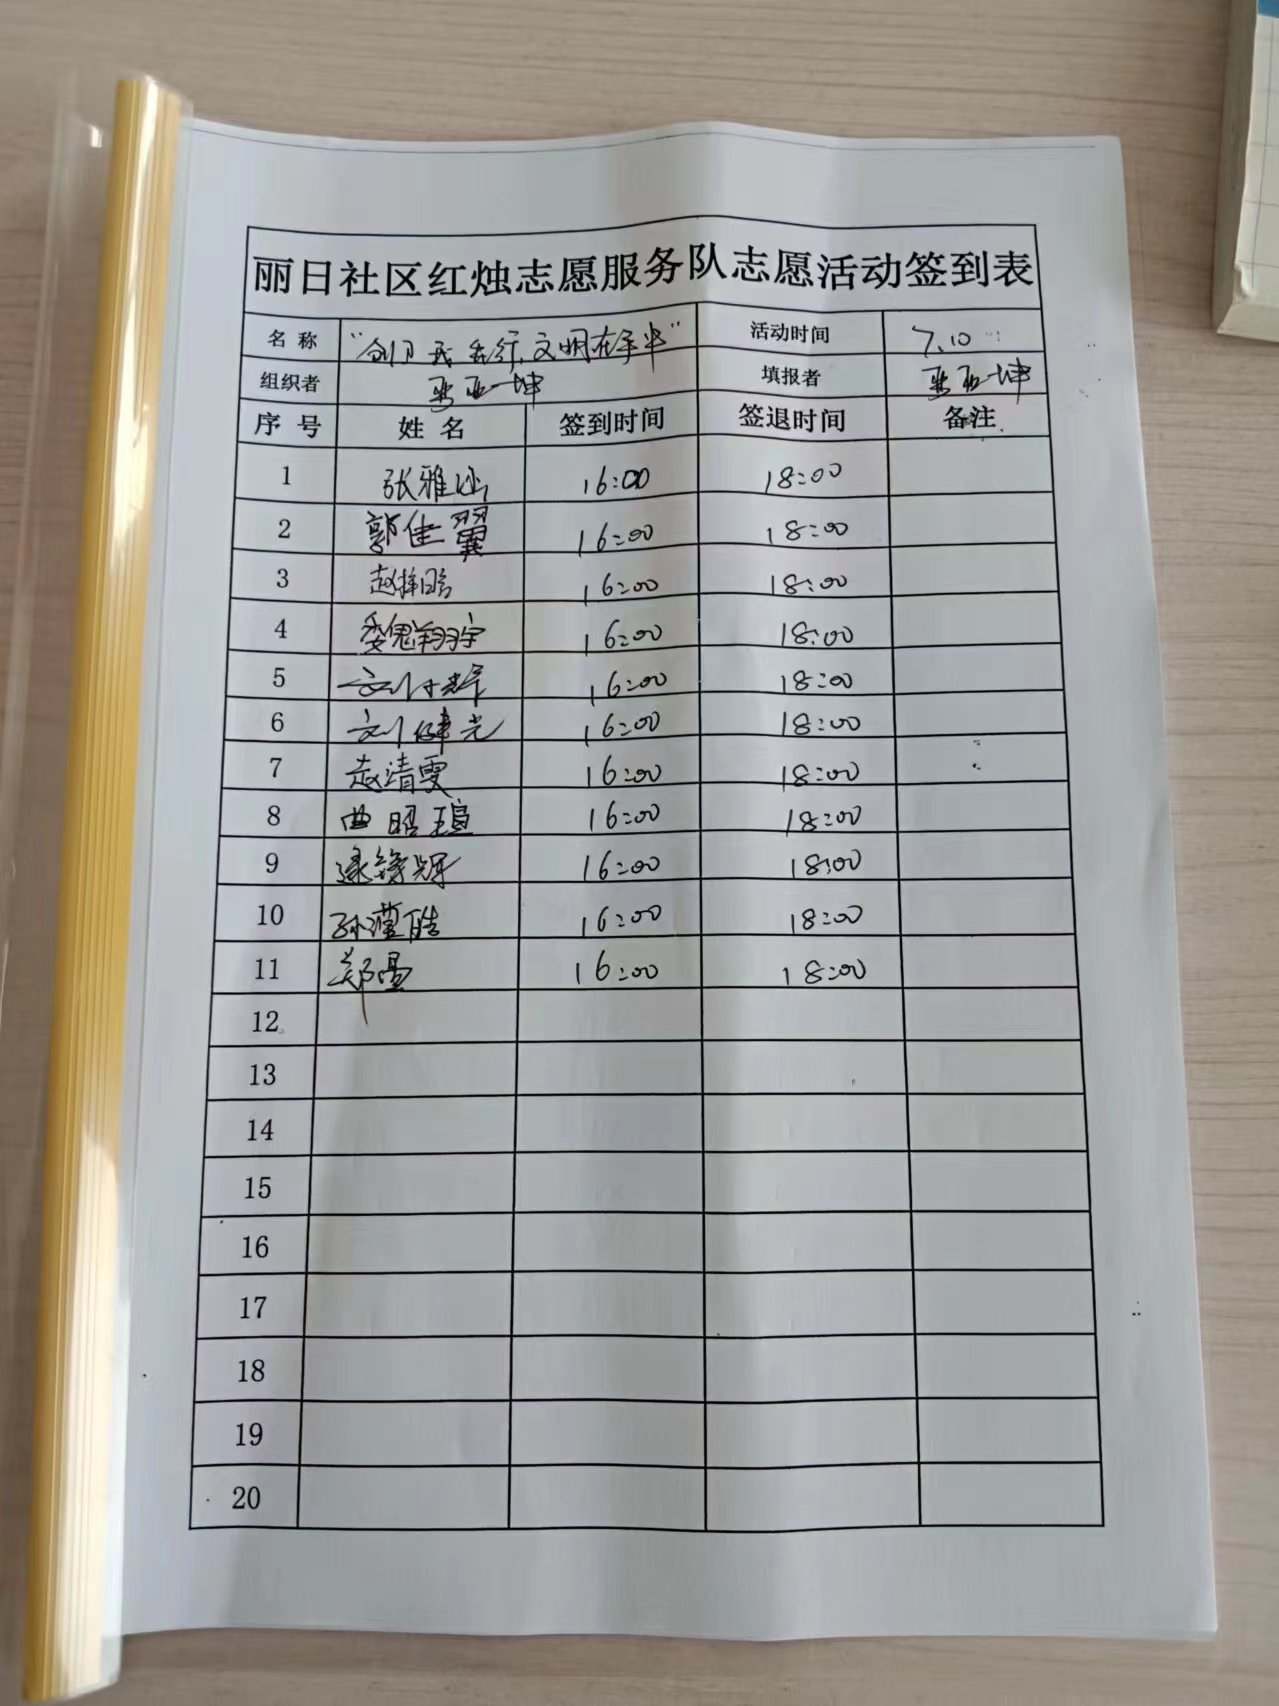 丽日社区红烛志愿服务队志愿活动签到表
名称 "创卫我先行,文明在手中" 活动时间 7.10
组织者 亚坤 填报者 亚坤
序号 姓名 签到时间 签退时间 备注
1 张雅涵 16:00 18:00
2 郭佳翼 16:00 18:00
3 赵梓皓 16:00 18:00
4 魏翔宇 16:00 18:00
5 刘 辉 16:00 18:00
6 刘肆光 16:00 18:00
7 赵清雯 16:00 18:00
8 曲昭瑄 16:00 18:00
9 逯锦辉 16:00 18:00
10 孙滢皓 16:00 18:00
11 郑 16:00 18:00
12
13
14
15
16
17
18
19
20